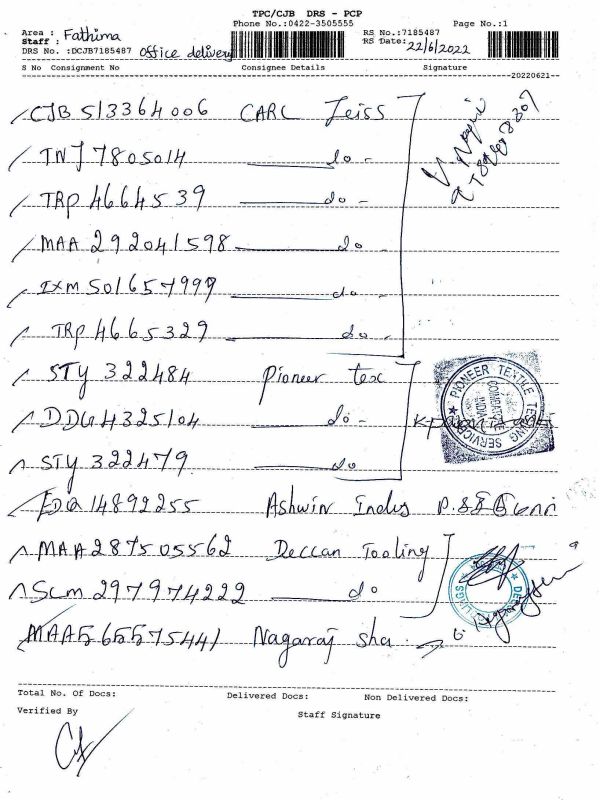 TPC/CJB DRS - PCP
Phone No.:0422-3505555 Page No.:1
Area : Fathima RS No.:7185487
Staff : RS Date: 22/6/2022
DRS No :DCJB7185487 office delivery
S No Consignment No Consignee Details Signature
20220621
CJB 513364006 CARL Zeiss
TNJ 7805014 do -
TRP 4664539 do -
MAA 292041598 do -
IXM 501657999 do -
TRP 4665329 do -
STY 322484 Pioneer tex
PIONEER TEXTILE TESTING SERVICE
COIMBATORE
INDIA
DDG 4325104 do -
STY 322479 do
14892255 Ashwin Indus
MAA 287505562 Deccan Tooling
SCM 297974222 do
MAA565575441 Nagaraj sha
Total No. Of Docs: Delivered Docs: Non Delivered Docs:
Verified By Staff Signature